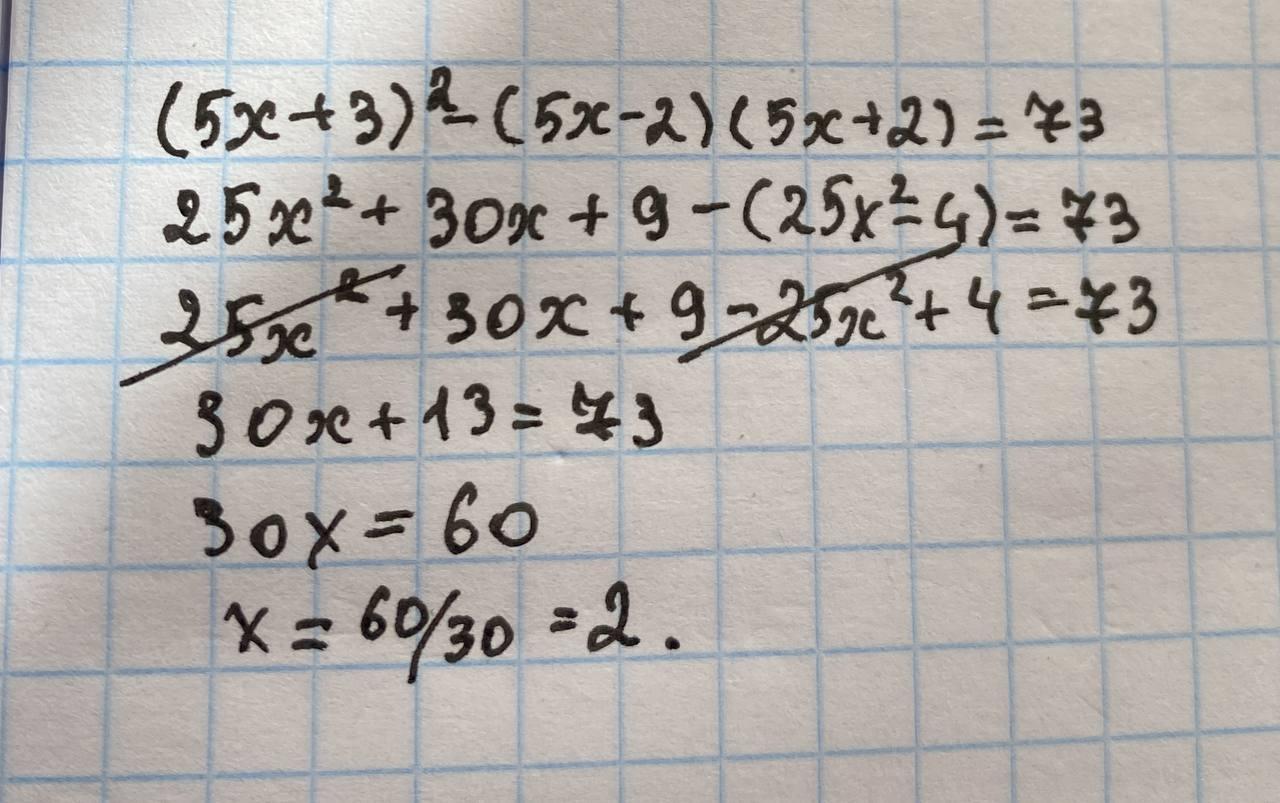 (5x+3)²-(5x-2)(5x+2)=73
25x²+30x+9-(25x²-4)=73
25x²+30x+9-25x²+4=73
30x+13=73
30x=60
x=60/30=2.